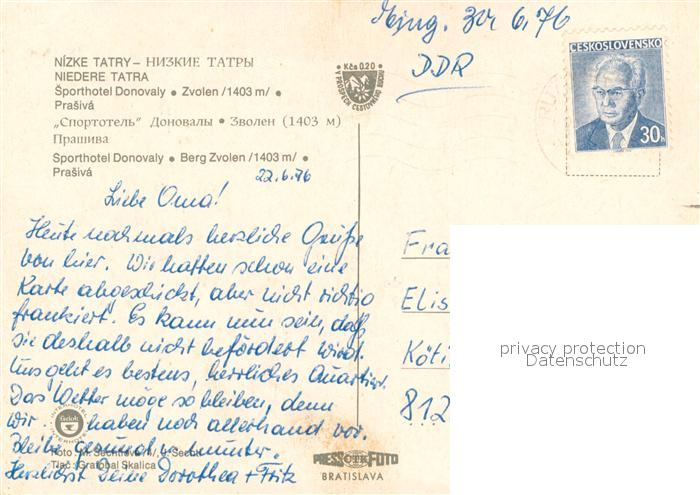 Eing. 30.6.76
DDR
ČESKOSLOVENSKO
30h
NÍZKE TATRY – НИЗКИЕ ТАТРЫ
NIEDERE TATRA
Športhotel Donovaly • Zvolen /1403 m/ •
Prašivá
„Спортотель" Доновалы • Зволен (1403 м)
Прашива
Sporthotel Donovaly • Berg Zvolen /1403 m/ •
Prašivá
Kčs 0.20
V PROSPECH CESTOVNÉHO RUCHU
22.6.76
Liebe Oma!
Heute nochmals herzliche Grüße
von hier. Wir hatten schon eine
Karte abgeschickt, aber nicht richtig
frankiert. Es kann nun sein, daß
sie deshalb nicht befördert wird.
Uns geht es bestens, herrliches Quartier.
Das Wetter möge so bleiben, denn
wir haben noch allerhand vor.
Bleibe gesund u. munter.
Herzlichst Deine Dorothea + Fritz
Fra
Elis
Köt
812
privacy protection
Datenschutz
INTERHOTEL
Foto: M. Sechtlová /4/, J. Sechtl
Tlač: Grafobal Skalica
PRESSFOTO
BRATISLAVA